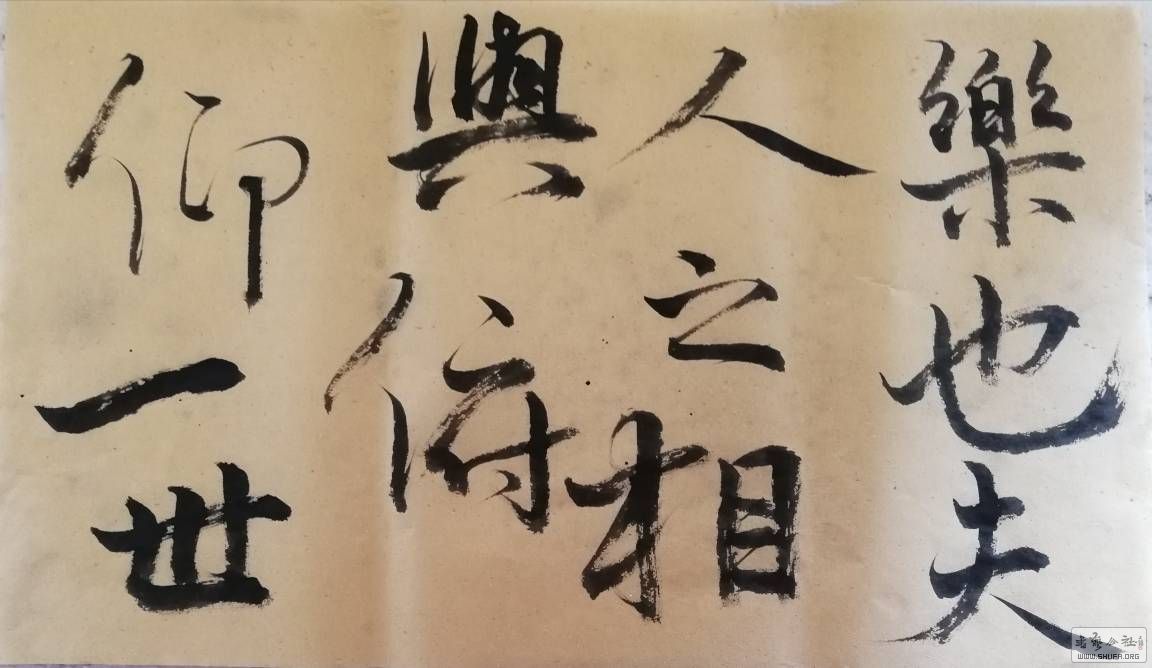 樂也夫
人之相
與俯
仰一世
书艺公社
WWW.SHUFA.ORG